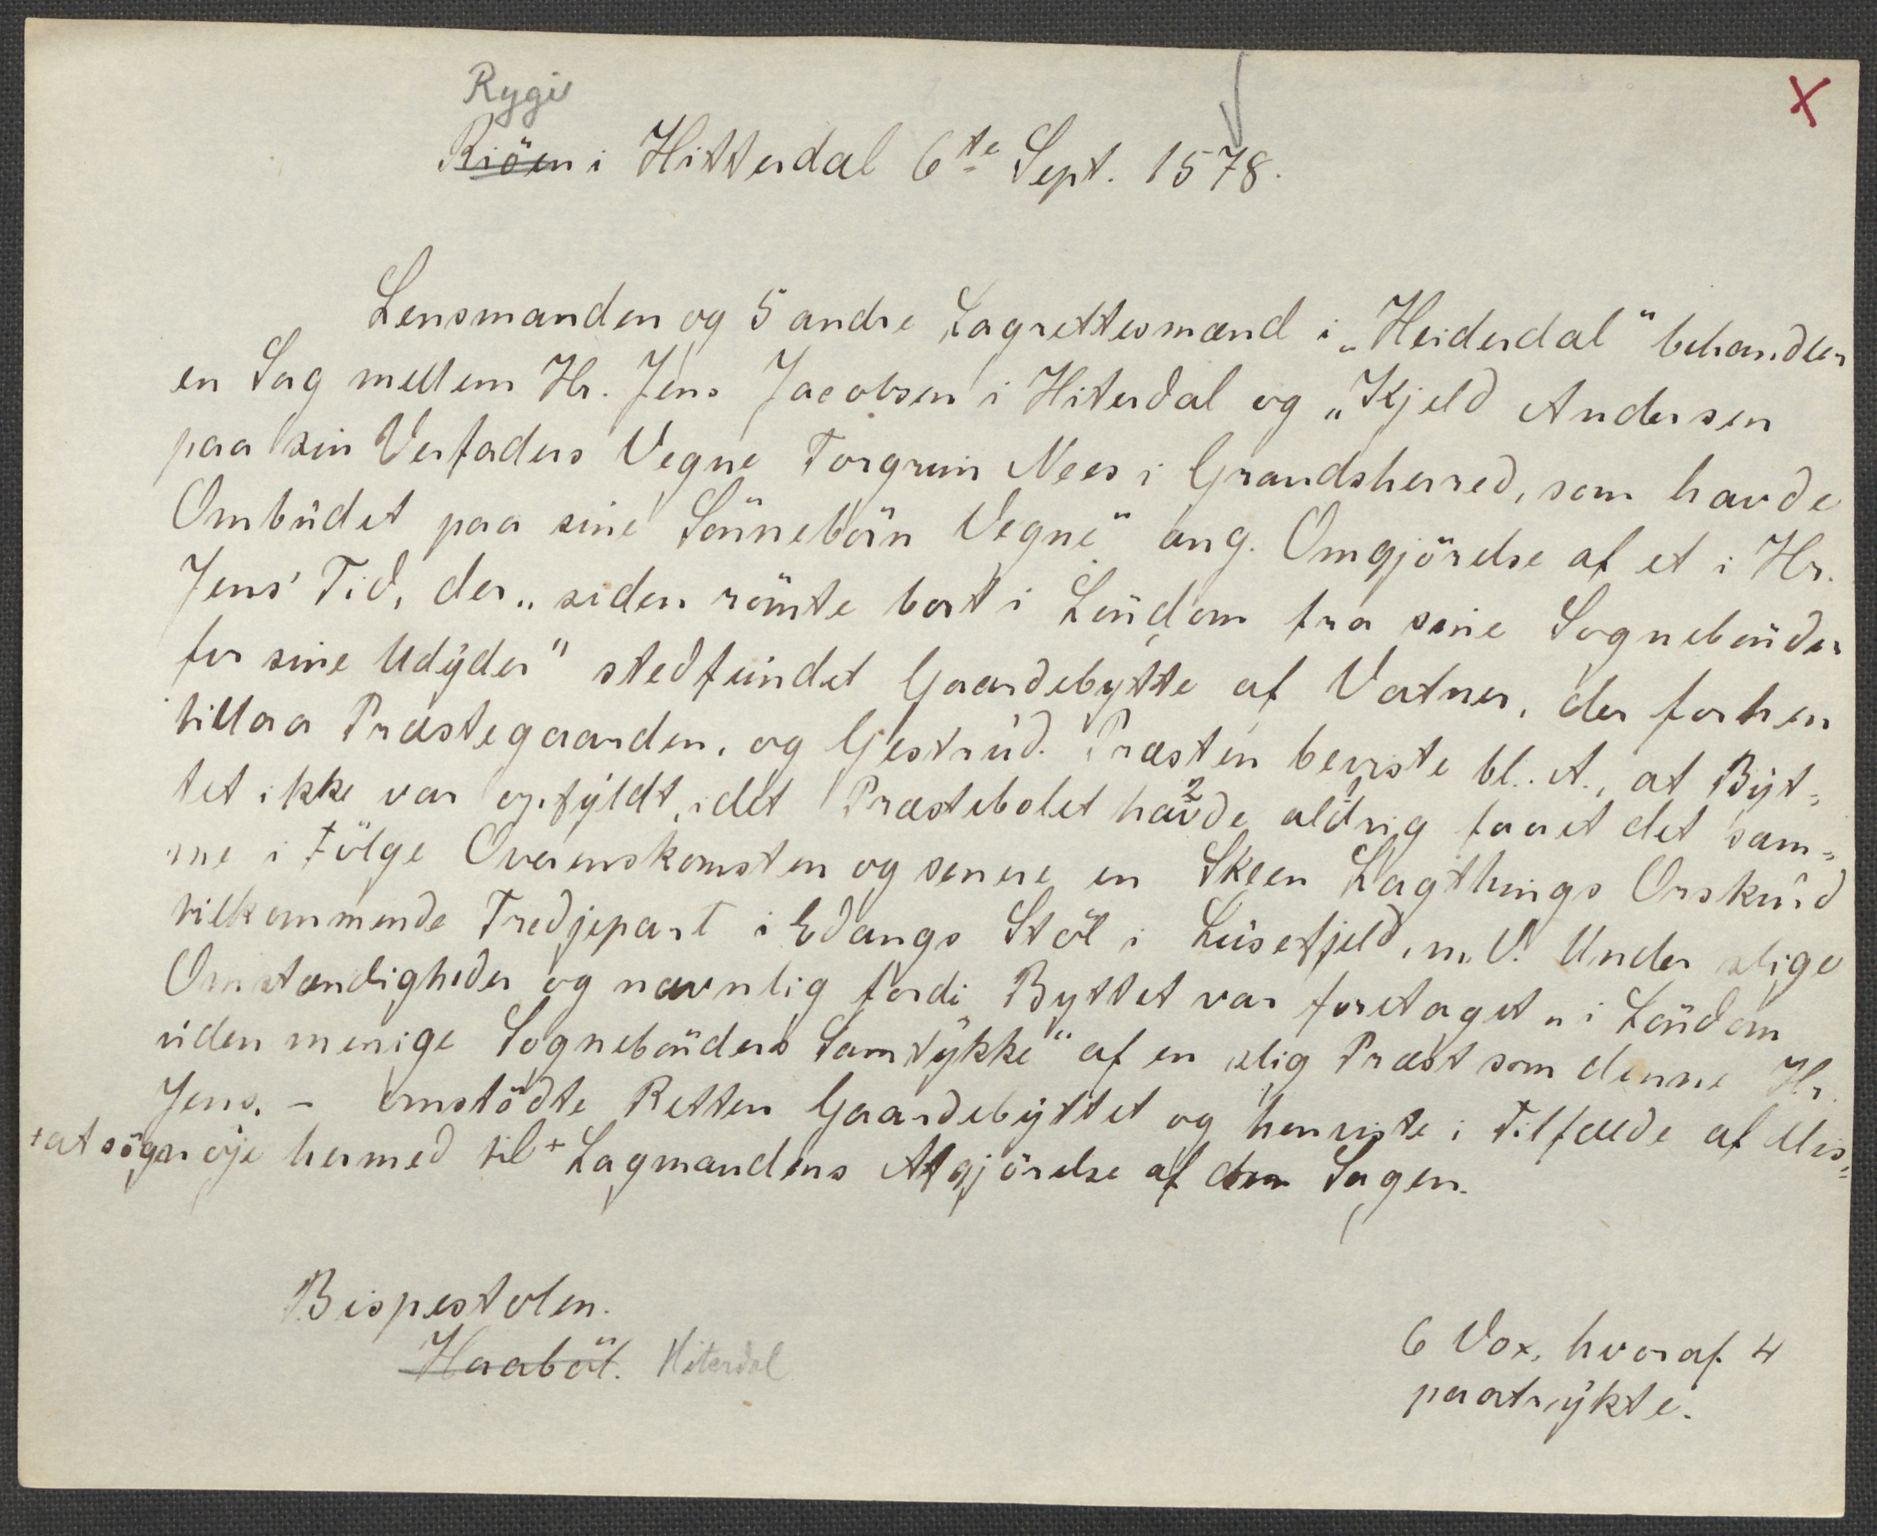 Rygi
Riöen i Hitterdal 6te Sept. 1578.
X
Lensmanden og 5 andre Lagrettesmænd i „Heiderdal" behandler
en Sag mellem Hr. Jens Jacobsen i Hiterdal og „Kjeld Andersen
paa sin Verfaders Vegne Torgrim Nees i Grandsherred, som havde
Ombudet paa sine Sönnebörn Vegne" ang. Omgjörelse af et i Hr.
Jens' Tid, der „siden römte bort i Löndom fra sine Sognebönder
for sine Udÿder" stedfundet Gaardebytte af Vatner, der forhen
tillaa Præstegaarden, og Gjestrud. Præsten beviste bl. A., at Byt=
tet ikke var opfyldt, idet Præstebolet havde 2 aldrig 1 faaet det sam=
me i Fölge Overenskomsten og senere en Skeen Lagthings Orskurd
tilkommende Tredjepart i Edangs Stöl i Lusefjeld, m. V. Under slige
Omstændigheder og navnlig fordi Byttet var foretaget „i Löndom
uden menige Sognebönders Samtykke" af en slig Præst som denne Hr.
Jens, – omstödte Retten Gaardebyttet og henviste i Tilfælde af Mis=
+at söge nöje hermed til + Lagmandens Afgjörelse af den Sagen.
Bispestolen.
Haaböt. Hiterdal
6 Vox, hvoraf 4
paatrykte.